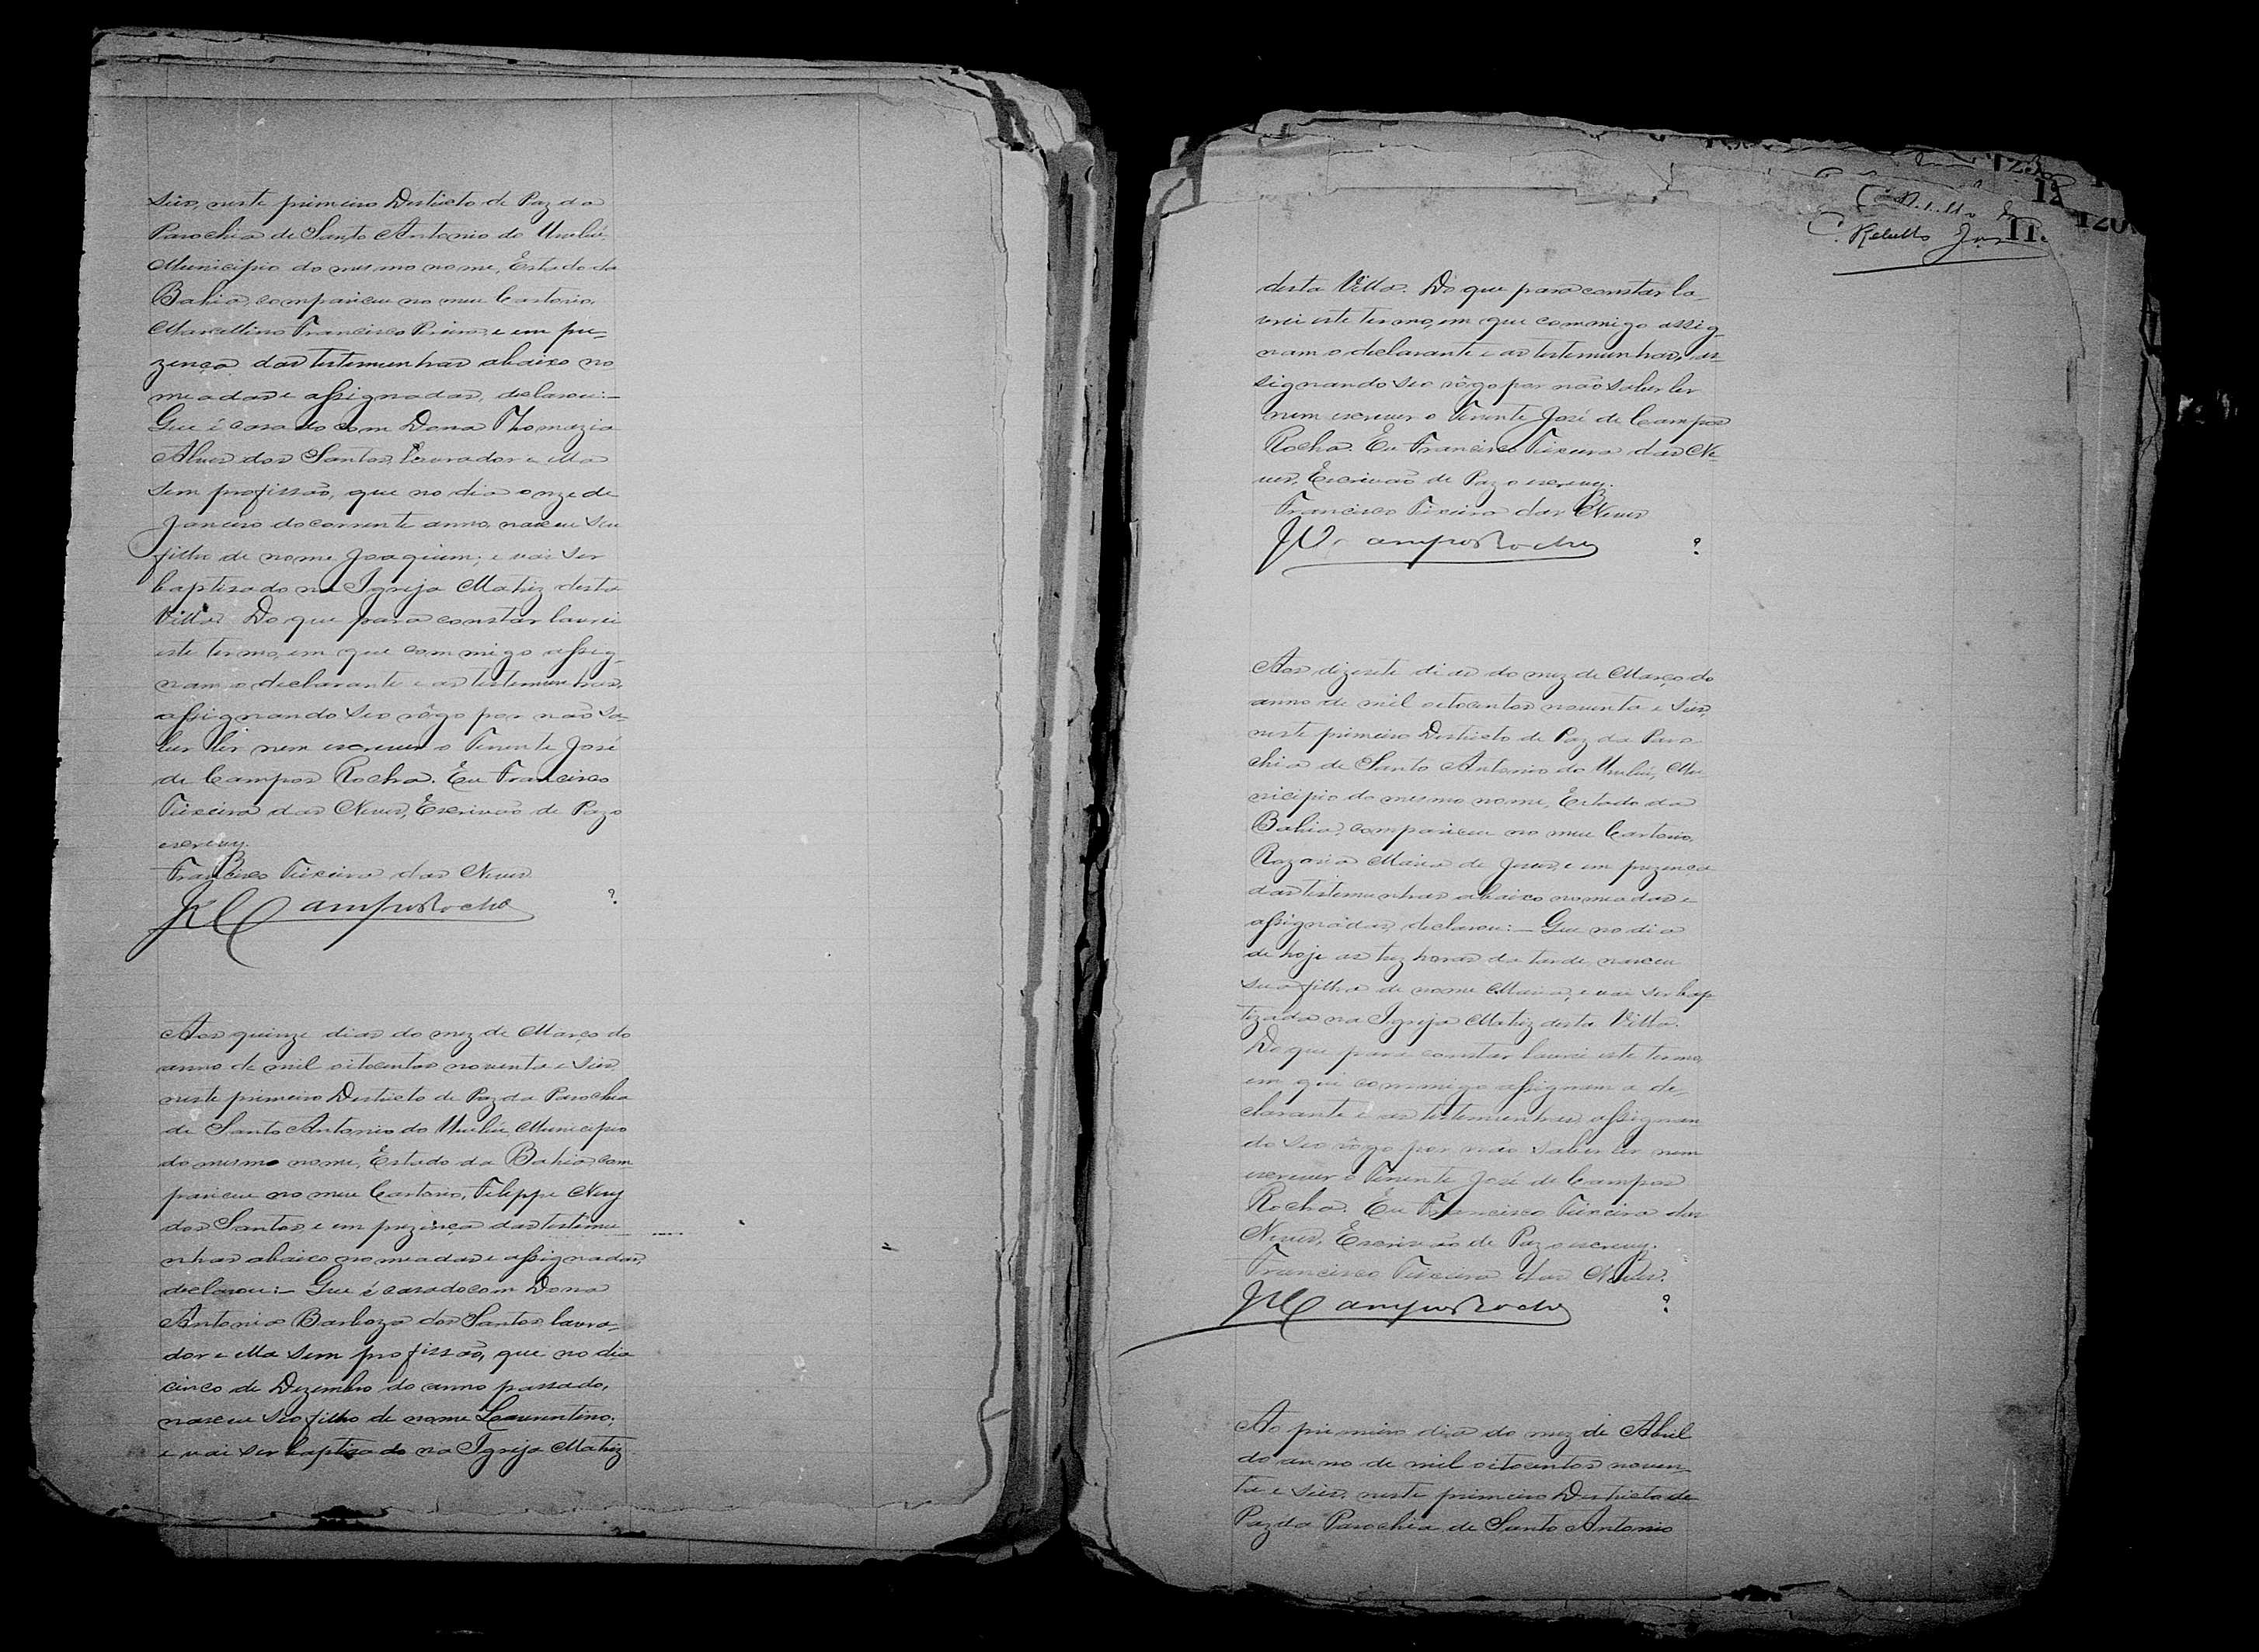 seis, neste primeiro Destricto de Paz da
Parochia de Santo Antonio do Urubú,
Municipio do mesmo nome, Estado da
Bahia, compareceu no meu Cartorio,
Marcellino Francisco Primo, e em pre-
zença das testemunhas abaixo no
meadas e assignadas, declarou:-
Que é casado com Dona Thomazia
Alves dos Santos, lavrador e ella
sem profissão, que no dia onze de
Janeiro do corrente anno, nasceu seu
filho de nome Joaquim; e vai ser
baptisado na Igreja Matriz desta
Villa. Do que para constar lavrei
este termo, em que commigo assig-
nam o declarante e as testemunhas,
assignando seo rôgo por não sa-
ber ler nem escrever o Tenente José
de Campos Rocha. Eu Francisco
Teixeira das Neves, Escrivão de Paz o
escrevy.
Francisco Teixeira das Neves
J C Campos Rocha ?
Aos quinze dias do mez de Março do
anno de mil oitocentos noventa e seis
neste primeiro Destricto de Paz da Parochia
de Santo Antonio do Urubú, Municipio
do mesmo nome, Estado da Bahia, com
pareceu no meu Cartorio, Felippe Nery
dos Santos, e em prezença das testemu
nhas abaixo nomeadas e assignadas,
declarou:- Que é casado com Dona
Antonia Barboza dos Santos, lavra-
dor e ella sem profissão, que no dia
cinco de Dezembro do anno passado,
nasceu seo filho de nome Laurentino;
e vai ser baptizado na Igreja Matriz
C. Rebello
C. Rebello
desta Villa. Do que para constar la-
vrei este termo, em que commigo assig-
nam o declarante e as testemunhas, as-
signando seo rôgo por não saber ler
nem escrever o Tenente José de Campos
Rocha. Eu Francisco Teixeira das Ne-
ves, Escrivão de Paz o escrevy.
Francisco Teixeira das Neves
Campos Rocha ?
Aos dizesete dias do mez de Março do
anno de mil oitocentos noventa e seis,
neste primeiro Destricto de Paz da Paro-
chia de Santo Antonio do Urubú, Mu-
nicipio do mesmo nome, Estado da
Bahia, compareceu no meu Cartorio,
Rozaria Maria de Jesus, e em prezença
das testemunhas abaixo nomeadas e
assignadas, declarou:- Que no dia
de hoje as trez horas da tarde, nasceu
sua filha de nome Maria, e vai ser bap
tizada na Igreja Matriz desta Villa.
Do que para constar lavrei este termo,
em que commigo assignam a de-
clarante e as testemunhas, assignan
do seo rôgo por não saber ler nem
escrever o Tenente José de Campos
Rocha. Eu Francisco Teixeira das
Neves, Escrivão de Paz o escrevy.
Francisco Teixeira das Neves.
Campos Rocha ?
Ao primeiro dia do mez de Abril
do anno de mil oitocentos noven-
ta e seis, neste primeiro Destricto de
Paz da Parochia de Santo Antonio